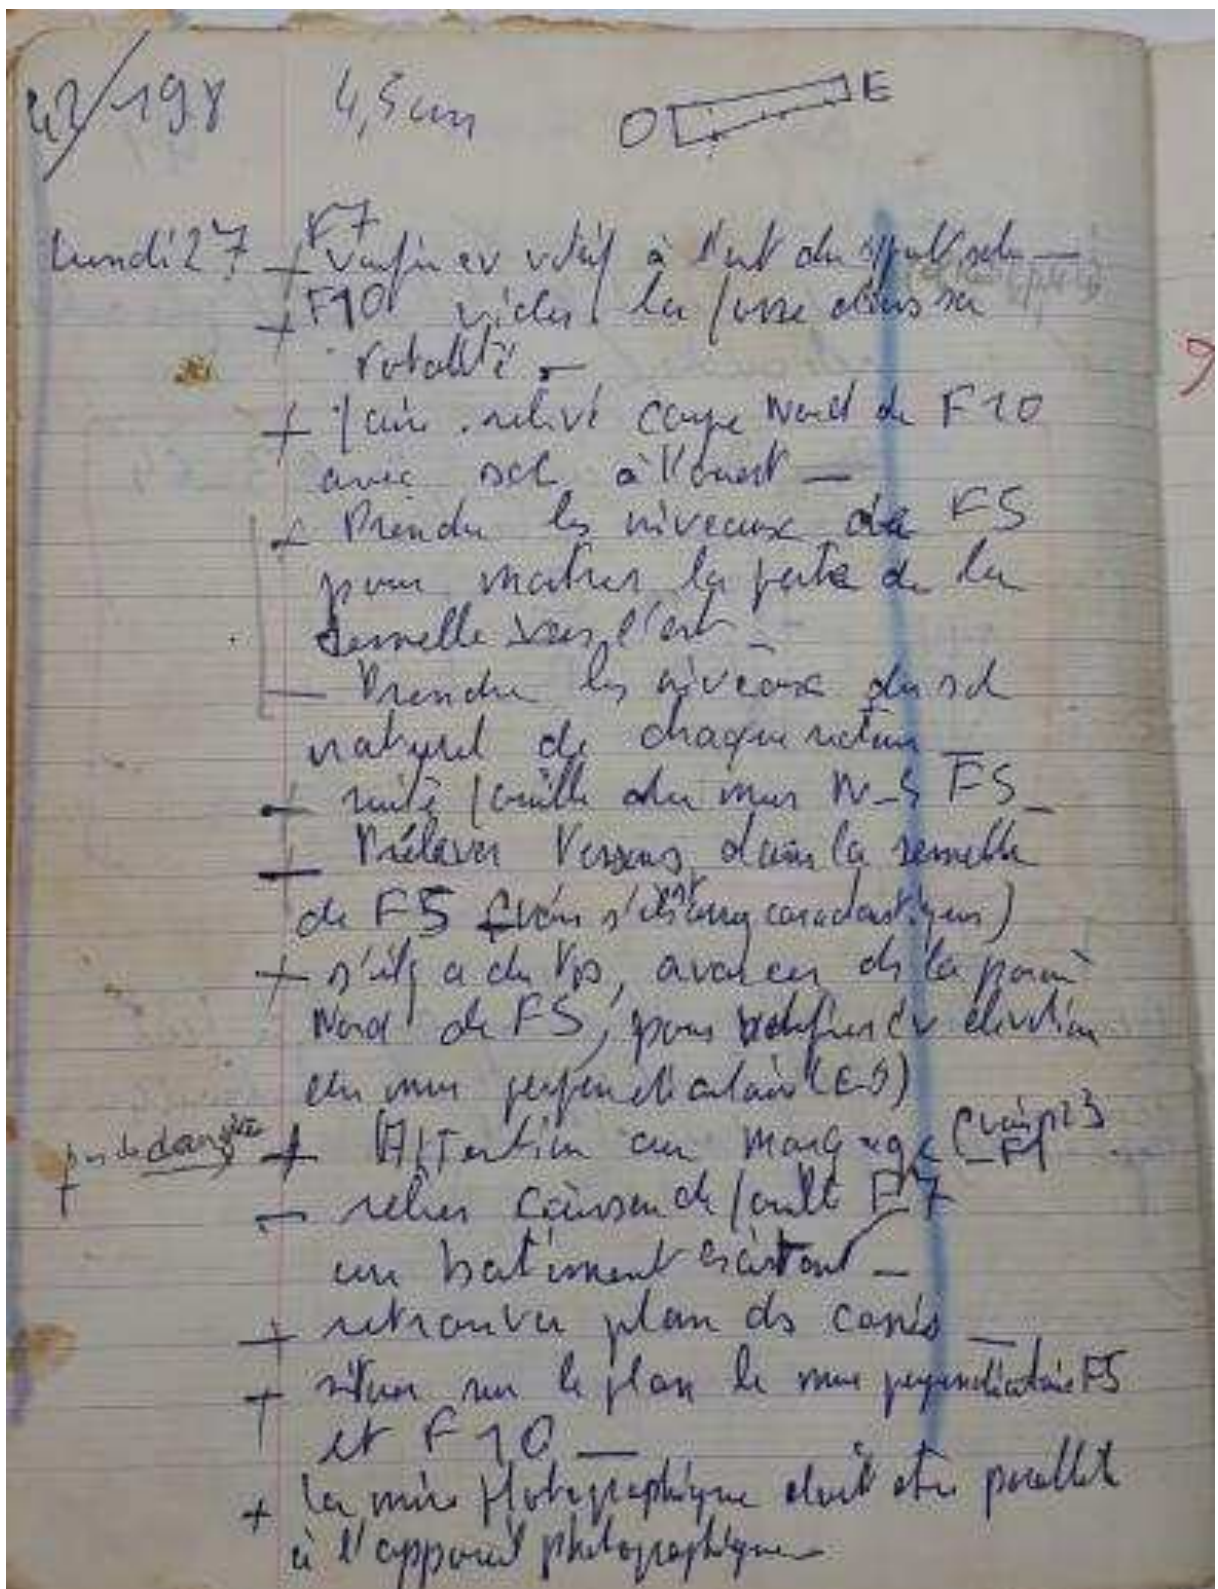 42/198 4,5 cm O E
Lundi 27 F7
+ à l'est du
+ F10 vider la fosse dans sa
totalité.
+ faire relevé coupe Nord de F10
avec sol à l'ouest —
+ Prendre les niveaux de F5
pour montrer la pente de la
semelle vers l'est —
— Prendre les niveaux du sol
naturel de chaque secteur —
+ suite fouille du mur N-S F5 —
+ Prélever tessons dans la semelle
de F5 (voir s'ils caractéristiques)
+ s'il y a du tps, avancer ds la paroi
Nord de F5, pour vérifier élévation
du mur perpendiculaire (E-O)
pas de danger + Attention au marquage (voir p23
F1
— relier caisson de fouille F7
au batiment existant —
+ retrouver plan ds
+ situer sur le plan le mur perpendiculaire F5
et F10 —
+ la mire photographique doit etre parallele
à l'appareil photographique